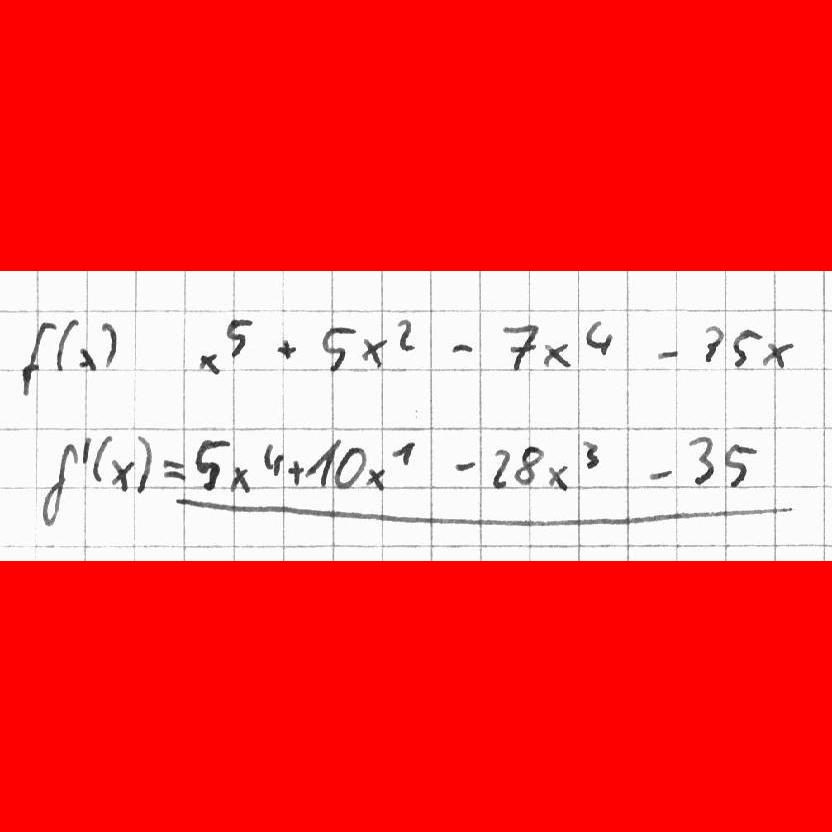 f(x) x⁵ + 5x² - 7x⁴ - 35x
f'(x) = 5x⁴ + 10x¹ - 28x³ - 35